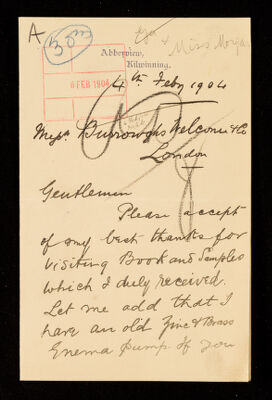 A
Miss Morgan
Abberview,
Kilwinning.
6 FEB 1904
4th Feby 1904
Messrs Burroughs Wellcome & Co
London
Gentlemen
Please accept
of my best thanks for
Visiting Book and Samples
which I duly received.
Let me add that I
have an old Zinc & Brass
Enema Pump. If you